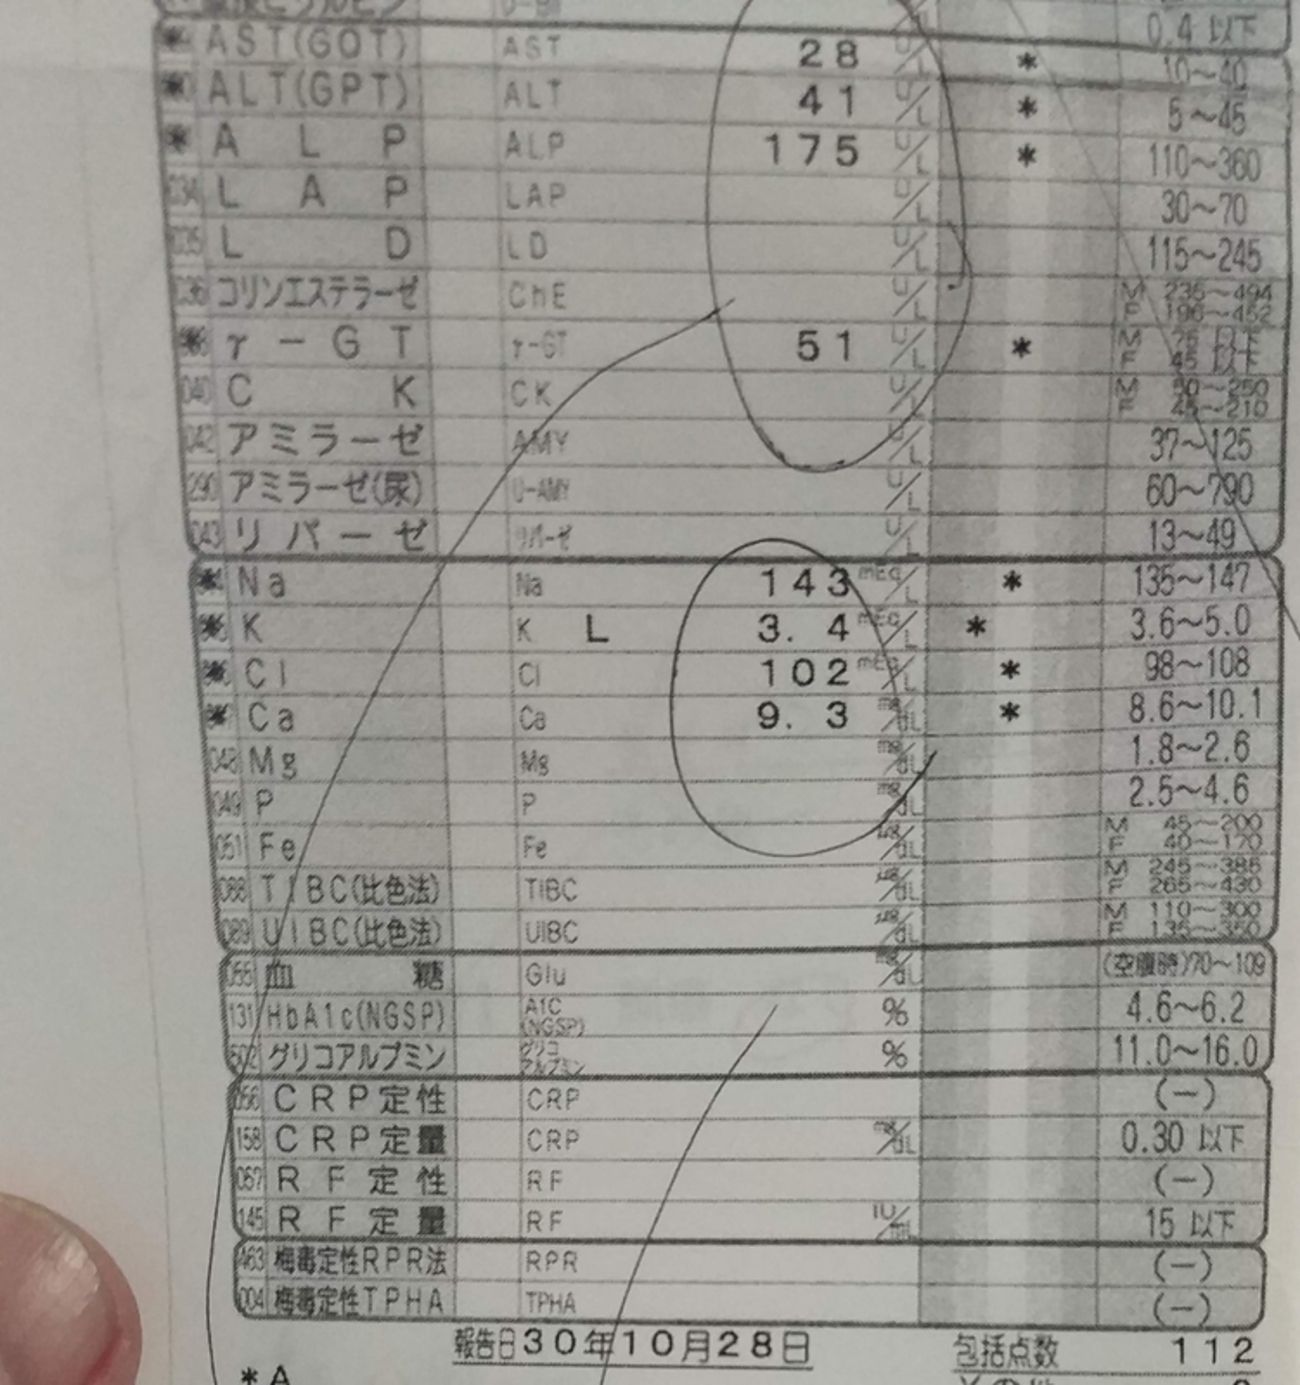 0.4 以下
AST(GOT) AST 28 U/L * 10～40
ALT(GPT) ALT 41 U/L * 5～45
* ALP ALP 175 U/L * 110～360
034 LAP LAP U/L 30～70
035 LD LD U/L 115～245
036 コリンエステラーゼ ChE U/L M 235～494 F 196～452
γ－GT γ-GT 51 U/L * M 75 以下 F 45 以下
040 CK CK U/L M 50～250 F 45～210
042 アミラーゼ AMY U/L 37～125
290 アミラーゼ(尿) U-AMY U/L 60～790
043 リパーゼ リパーゼ U/L 13～49
Na Na 143 mEq/L * 135～147
K K L 3.4 mEq/L * 3.6～5.0
Cl Cl 102 mEq/L * 98～108
Ca Ca 9.3 mg/dL * 8.6～10.1
048 Mg Mg mg/dL 1.8～2.6
049 P P mg/dL 2.5～4.6
051 Fe Fe μg/dL M 45～200 F 40～170
088 TIBC(比色法) TIBC μg/dL M 245～385 F 265～430
089 UIBC(比色法) UIBC μg/dL M 110～300 F 135～350
055 血糖 Glu mg/dL (空腹時)70～109
131 HbA1c(NGSP) A1C (NGSP) % 4.6～6.2
502 グリコアルブミン グリコアルブミン % 11.0～16.0
056 CRP定性 CRP (－)
158 CRP定量 CRP mg/dL 0.30 以下
057 RF定性 RF (－)
145 RF定量 RF IU/mL 15 以下
463 梅毒定性RPR法 RPR (－)
004 梅毒定性TPHA TPHA (－)
報告日30年10月28日 包括点数 112
* A